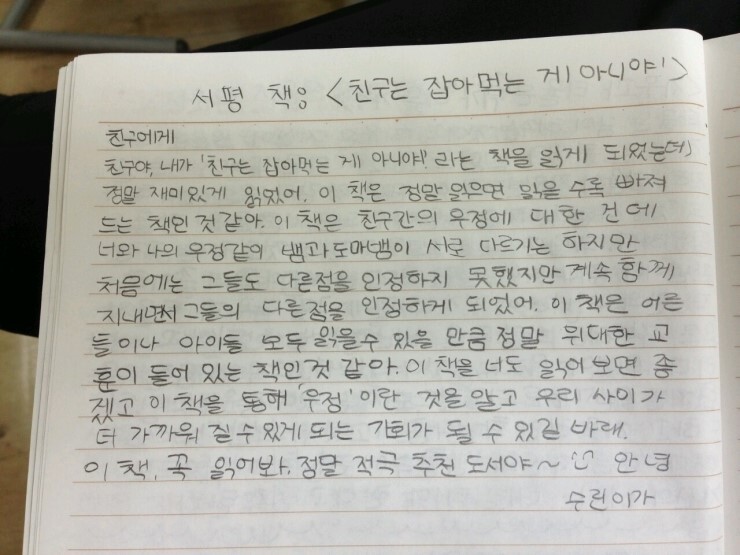 서평 책: <친구는 잡아먹는 게 아니야!>
친구에게
친구야, 내가 '친구는 잡아먹는 게 아니야!' 라는 책을 읽게 되었는데,
정말 재미있게 읽었어. 이 책은 정말 읽으면 읽을 수록 빠져
드는 책인것 같아. 이 책은 친구간의 우정에 대한 건데
너와 나의 우정같이 뱀과도마뱀이 서로 다르기는 하지만
처음에는 그들도 다른점을 인정하지 못했지만 계속 함께
지내면서 그들의 다른점을 인정하게 되었어. 이 책은 어른
들이나 아이들 모두 읽을수 있을 만큼 정말 위대한 교
훈이 들어 있는 책인것 같아. 이 책을 너도 읽어 보면 좋
겠고 이 책을 통해 '우정' 이란 것을 알고 우리 사이가
더 가까워 질 수 있게 되는 기회가 될 수 있길 바래.
이 책, 꼭 읽어봐. 정말 적극 추천 도서야~ 안녕
수린이가